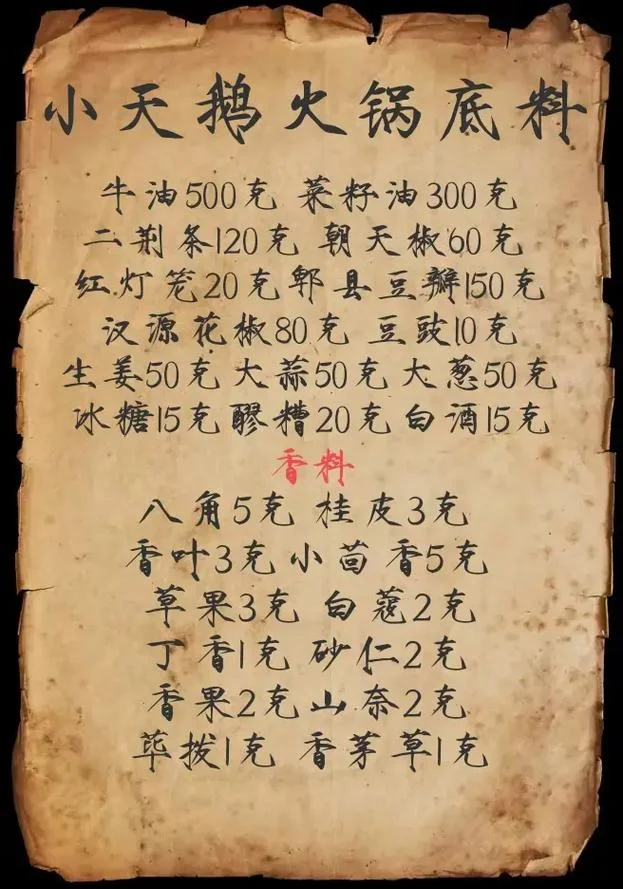 小天鹅火锅底料
牛油500克 菜籽油300克
二荆条120克 朝天椒60克
红灯笼20克 郫县豆瓣150克
汉源花椒80克 豆豉10克
生姜50克 大蒜50克 大葱50克
冰糖15克 醪糟20克 白酒15克
香料
八角5克 桂皮3克
香叶3克 小茴香5克
草果3克 白蔻2克
丁香1克 砂仁2克
香果2克 山奈2克
荜拨1克 香茅草1克